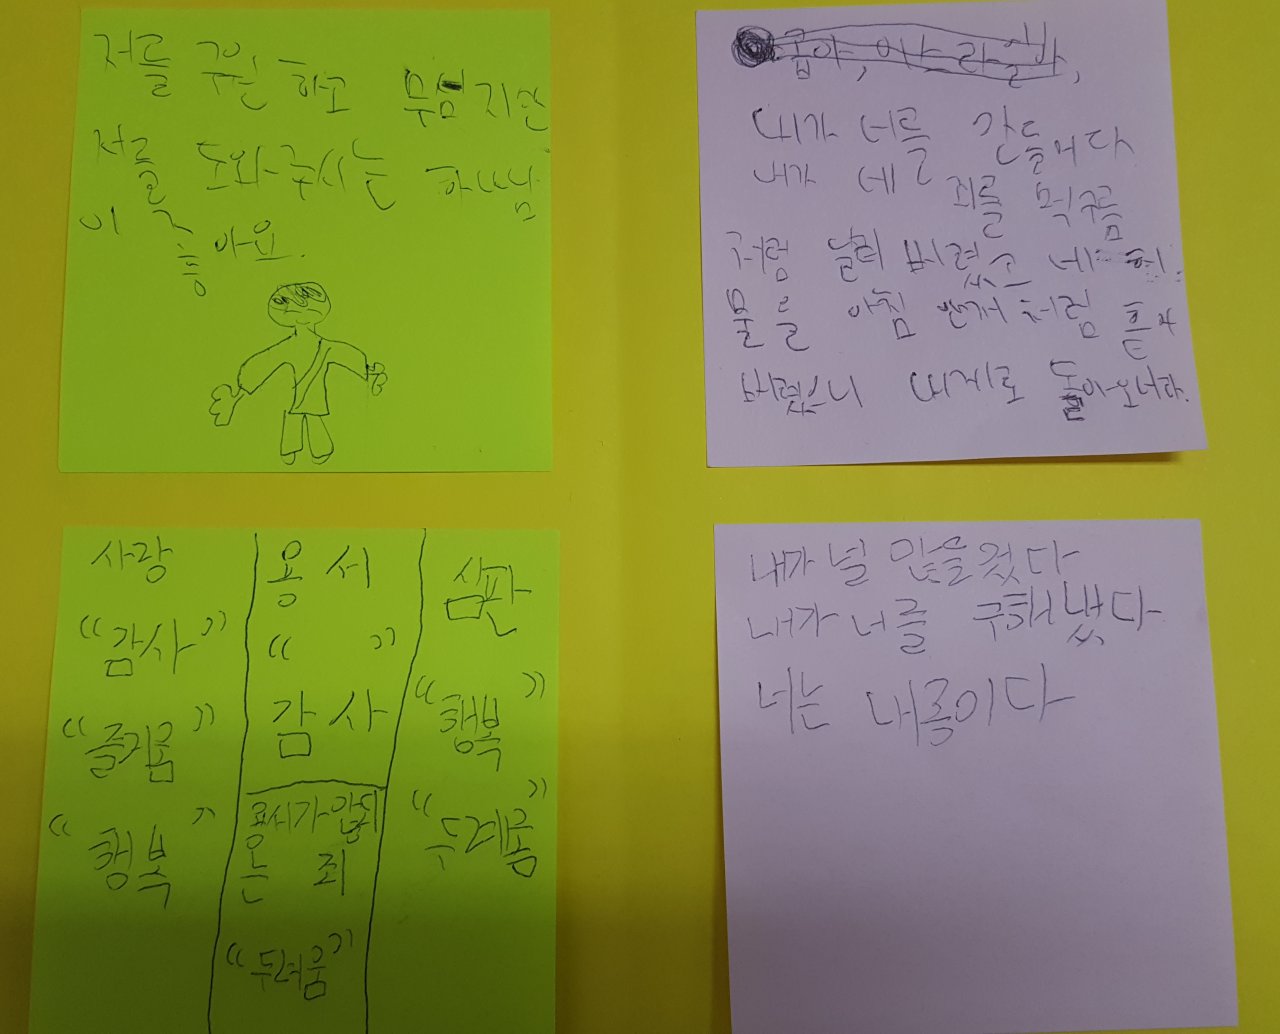 저를 구원 하고 무섭지만
저를 도와주시는 하나님
이 좋아요.
내가 너를 만들어다
내가 네 죄를 먹구름
처럼 날려 버렸고 네 허
물을 아침 안개처럼 흩어
버렸으니 내게로 돌아오너라.
사랑
“감사”
“즐거움”
“행복”
용서
“ ”
감사
용서가 안되
는 죄
“두려움”
심판
“행복”
“두려움”
내가 널 만들었다
내가 너를 구해냈다
너는 내종이다